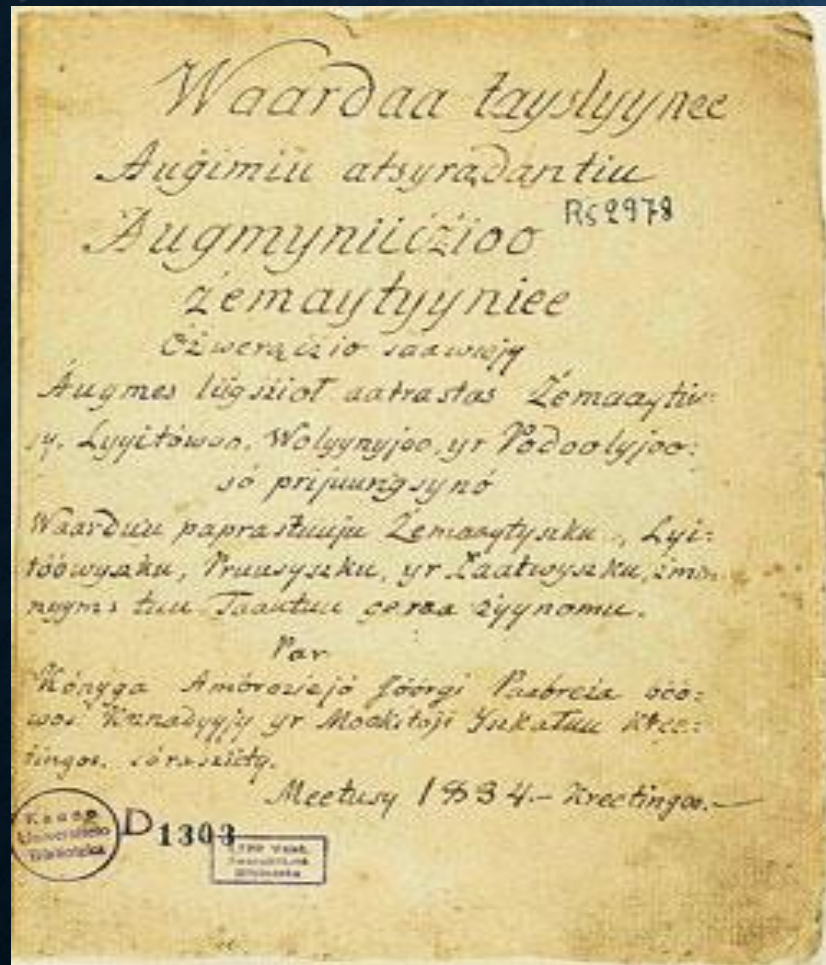 Waardaa tayslyynee
Augimiu atsyradantiu
Rs 2978
Augmyniiczioo
Żemaytyyniee
Óżwerącizio saawieję
Augmes lūgszioł aatrastas Żemaaytiu-
sy, Lyyitówoo, Wolyynyjoo, yr Podoolyjoo:
só prijuungsynó
Waarduu paprastuuju Żemaaytyszku, Lyi:
tóówyszku, Pruusyszku, yr Łaatwyszku, żmo-
nygms tuu Taautuu geraa żyynomu.
Par
Kónyga Ambroziejó Jóórgi Paabreża óóó:
wos Kunadyyjy yr Mookitoji Iszkałuu Kree:
tingos. sóraszіtę.
Meetusy 1834.- Kreetingoo.-
Kauno
Universiteto
Biblioteka
D 1303
Biblioteka